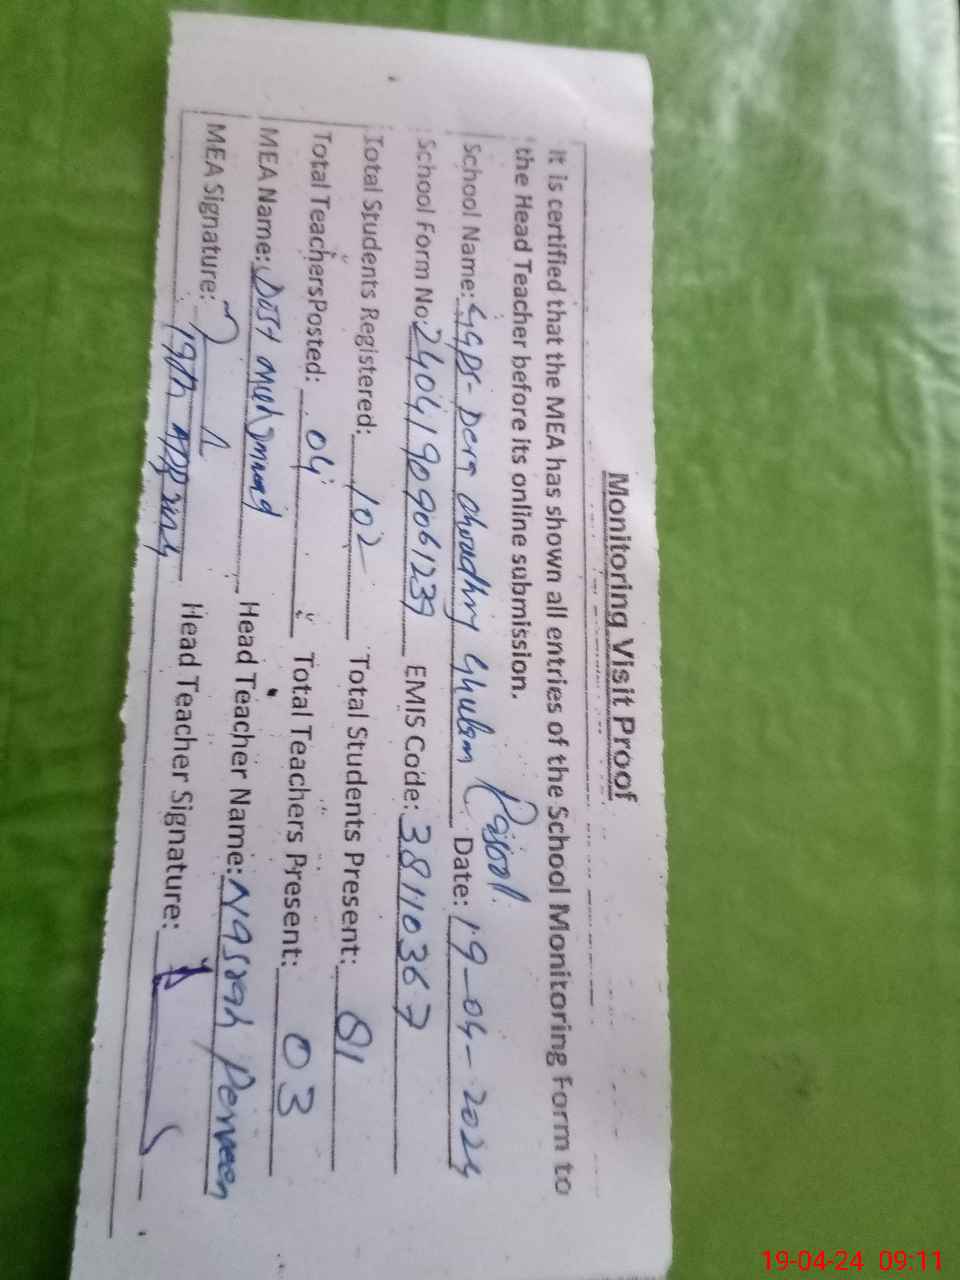 Monitoring Visit Proof
It is certified that the MEA has shown all entries of the School Monitoring Form to
the Head Teacher before its online submission.
School Name: GGPS- Dera Choudhry Ghulam Rasool. Date: 19-04-2024
School Form No: 24041909061239 EMIS Code: 38110367
Total Students Registered: 102 Total Students Present: 81
Total Teachers Posted: 04 Total Teachers Present: 03
MEA Name: Dost Muhammad Head Teacher Name: Nasrah Perveen
MEA Signature: 19th Head Teacher Signature:
19-04-24 09:11